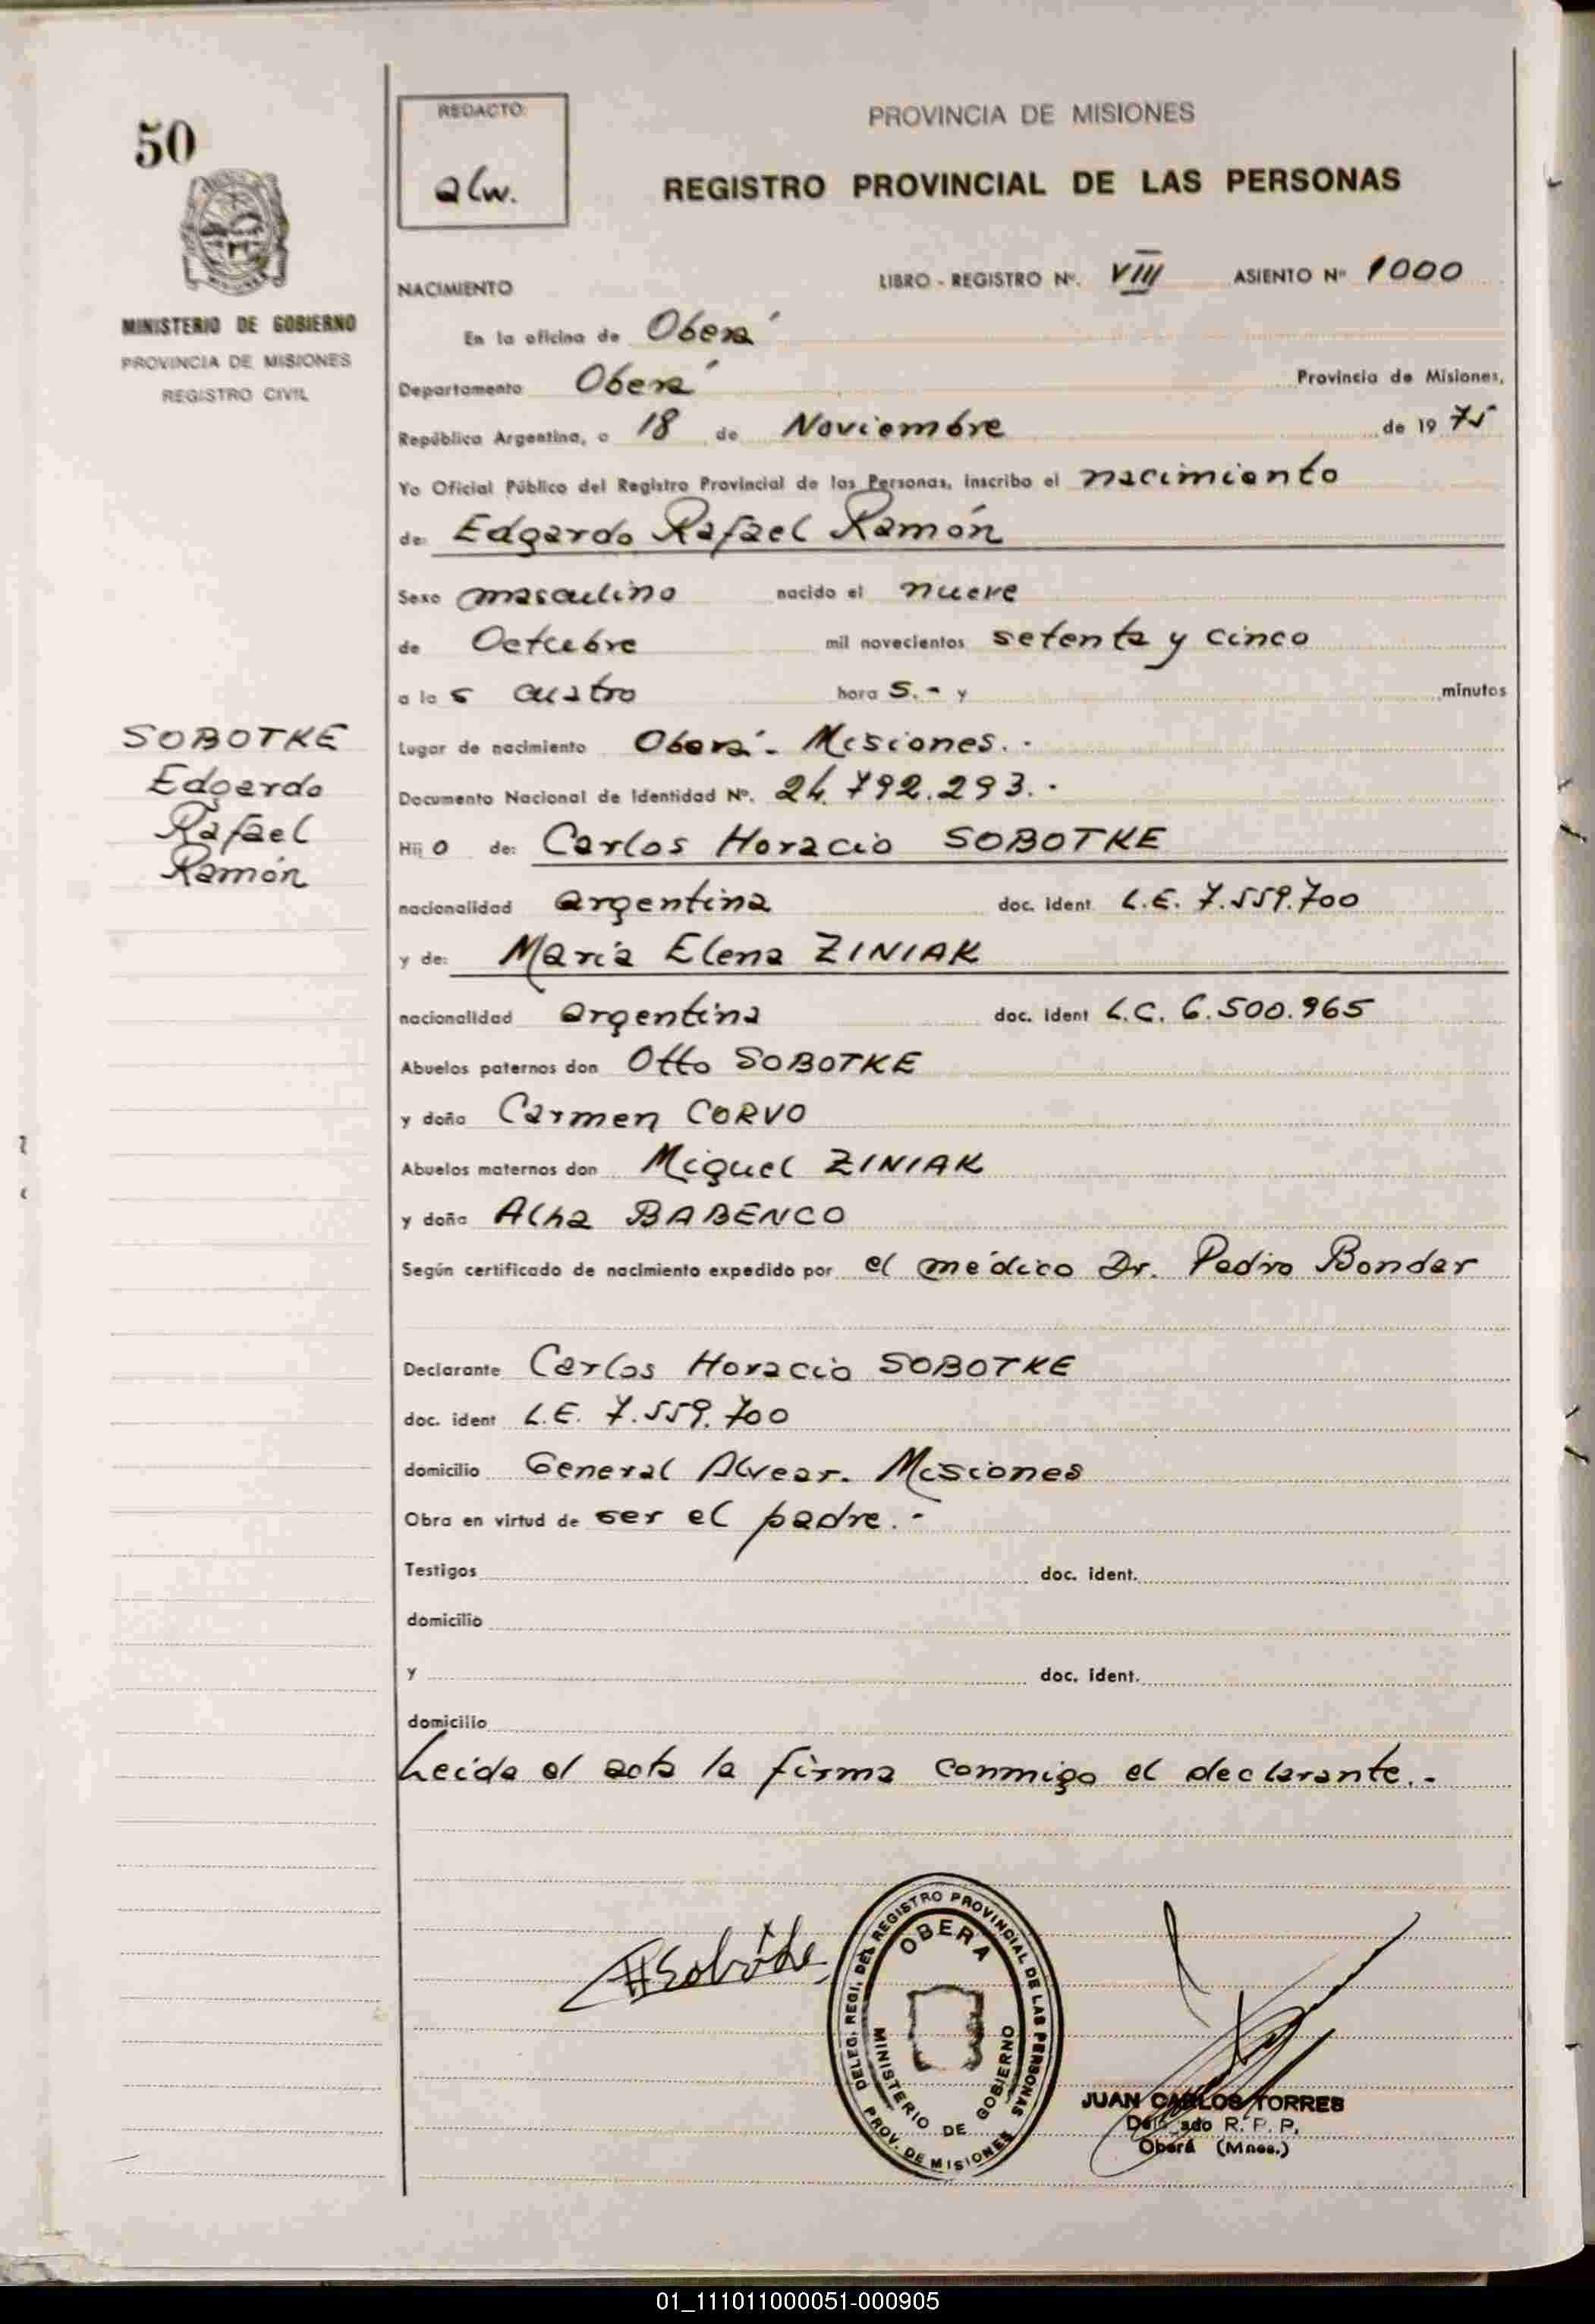 50
MINISTERIO DE GOBIERNO
PROVINCIA DE MISIONES
REGISTRO CIVIL
REDACTO:
alw.
PROVINCIA DE MISIONES
REGISTRO PROVINCIAL DE LAS PERSONAS
NACIMIENTO LIBRO - REGISTRO Nº. VIII ASIENTO Nº 1000
En la oficina de Oberá
Departamento Oberá Provincia de Misiones,
República Argentina, a 18 de Noviembre de 19 75
Yo Oficial Público del Registro Provincial de las Personas, inscribo el nacimiento
de: Edgardo Rafael Ramón
Sexo masculino nacido el nueve
de Octubre mil novecientos setenta y cinco
a la s cuatro hora s.- y minutos
Lugar de nacimiento Oberá - Misiones.-
Documento Nacional de Identidad Nº. 24.792.293.-
Hij o de: Carlos Horacio SOBOTKE
nacionalidad argentina doc. ident L.E. 7.559.700
y de: María Elena ZINIAK
nacionalidad argentina doc. ident L.C. 6.500.965
Abuelos paternos don Otto SOBOTKE
y doña Carmen CORVO
Abuelos maternos don Miguel ZINIAK
y doña Alha BABENCO
Según certificado de nacimiento expedido por el médico Dr. Pedro Bondar
Declarante Carlos Horacio SOBOTKE
doc. ident L.E. 7.559.700
domicilio General Alvear. Misiones
Obra en virtud de ser el padre.-
Testigos doc. ident.
domicilio
y doc. ident.
domicilio
Leida el acta la firma conmigo el declarante.-
SOBOTKE
Edgardo
Rafael
Ramón
DELEG. REGI. DEL REGISTRO PROVINCIAL DE LAS PERSONAS
OBERA
MINISTERIO DE GOBIERNO
PROV. DE MISIONES
JUAN CARLOS TORRES
Delegado R. P. P.
Oberá (Mnes.)
01_111011000051-000905